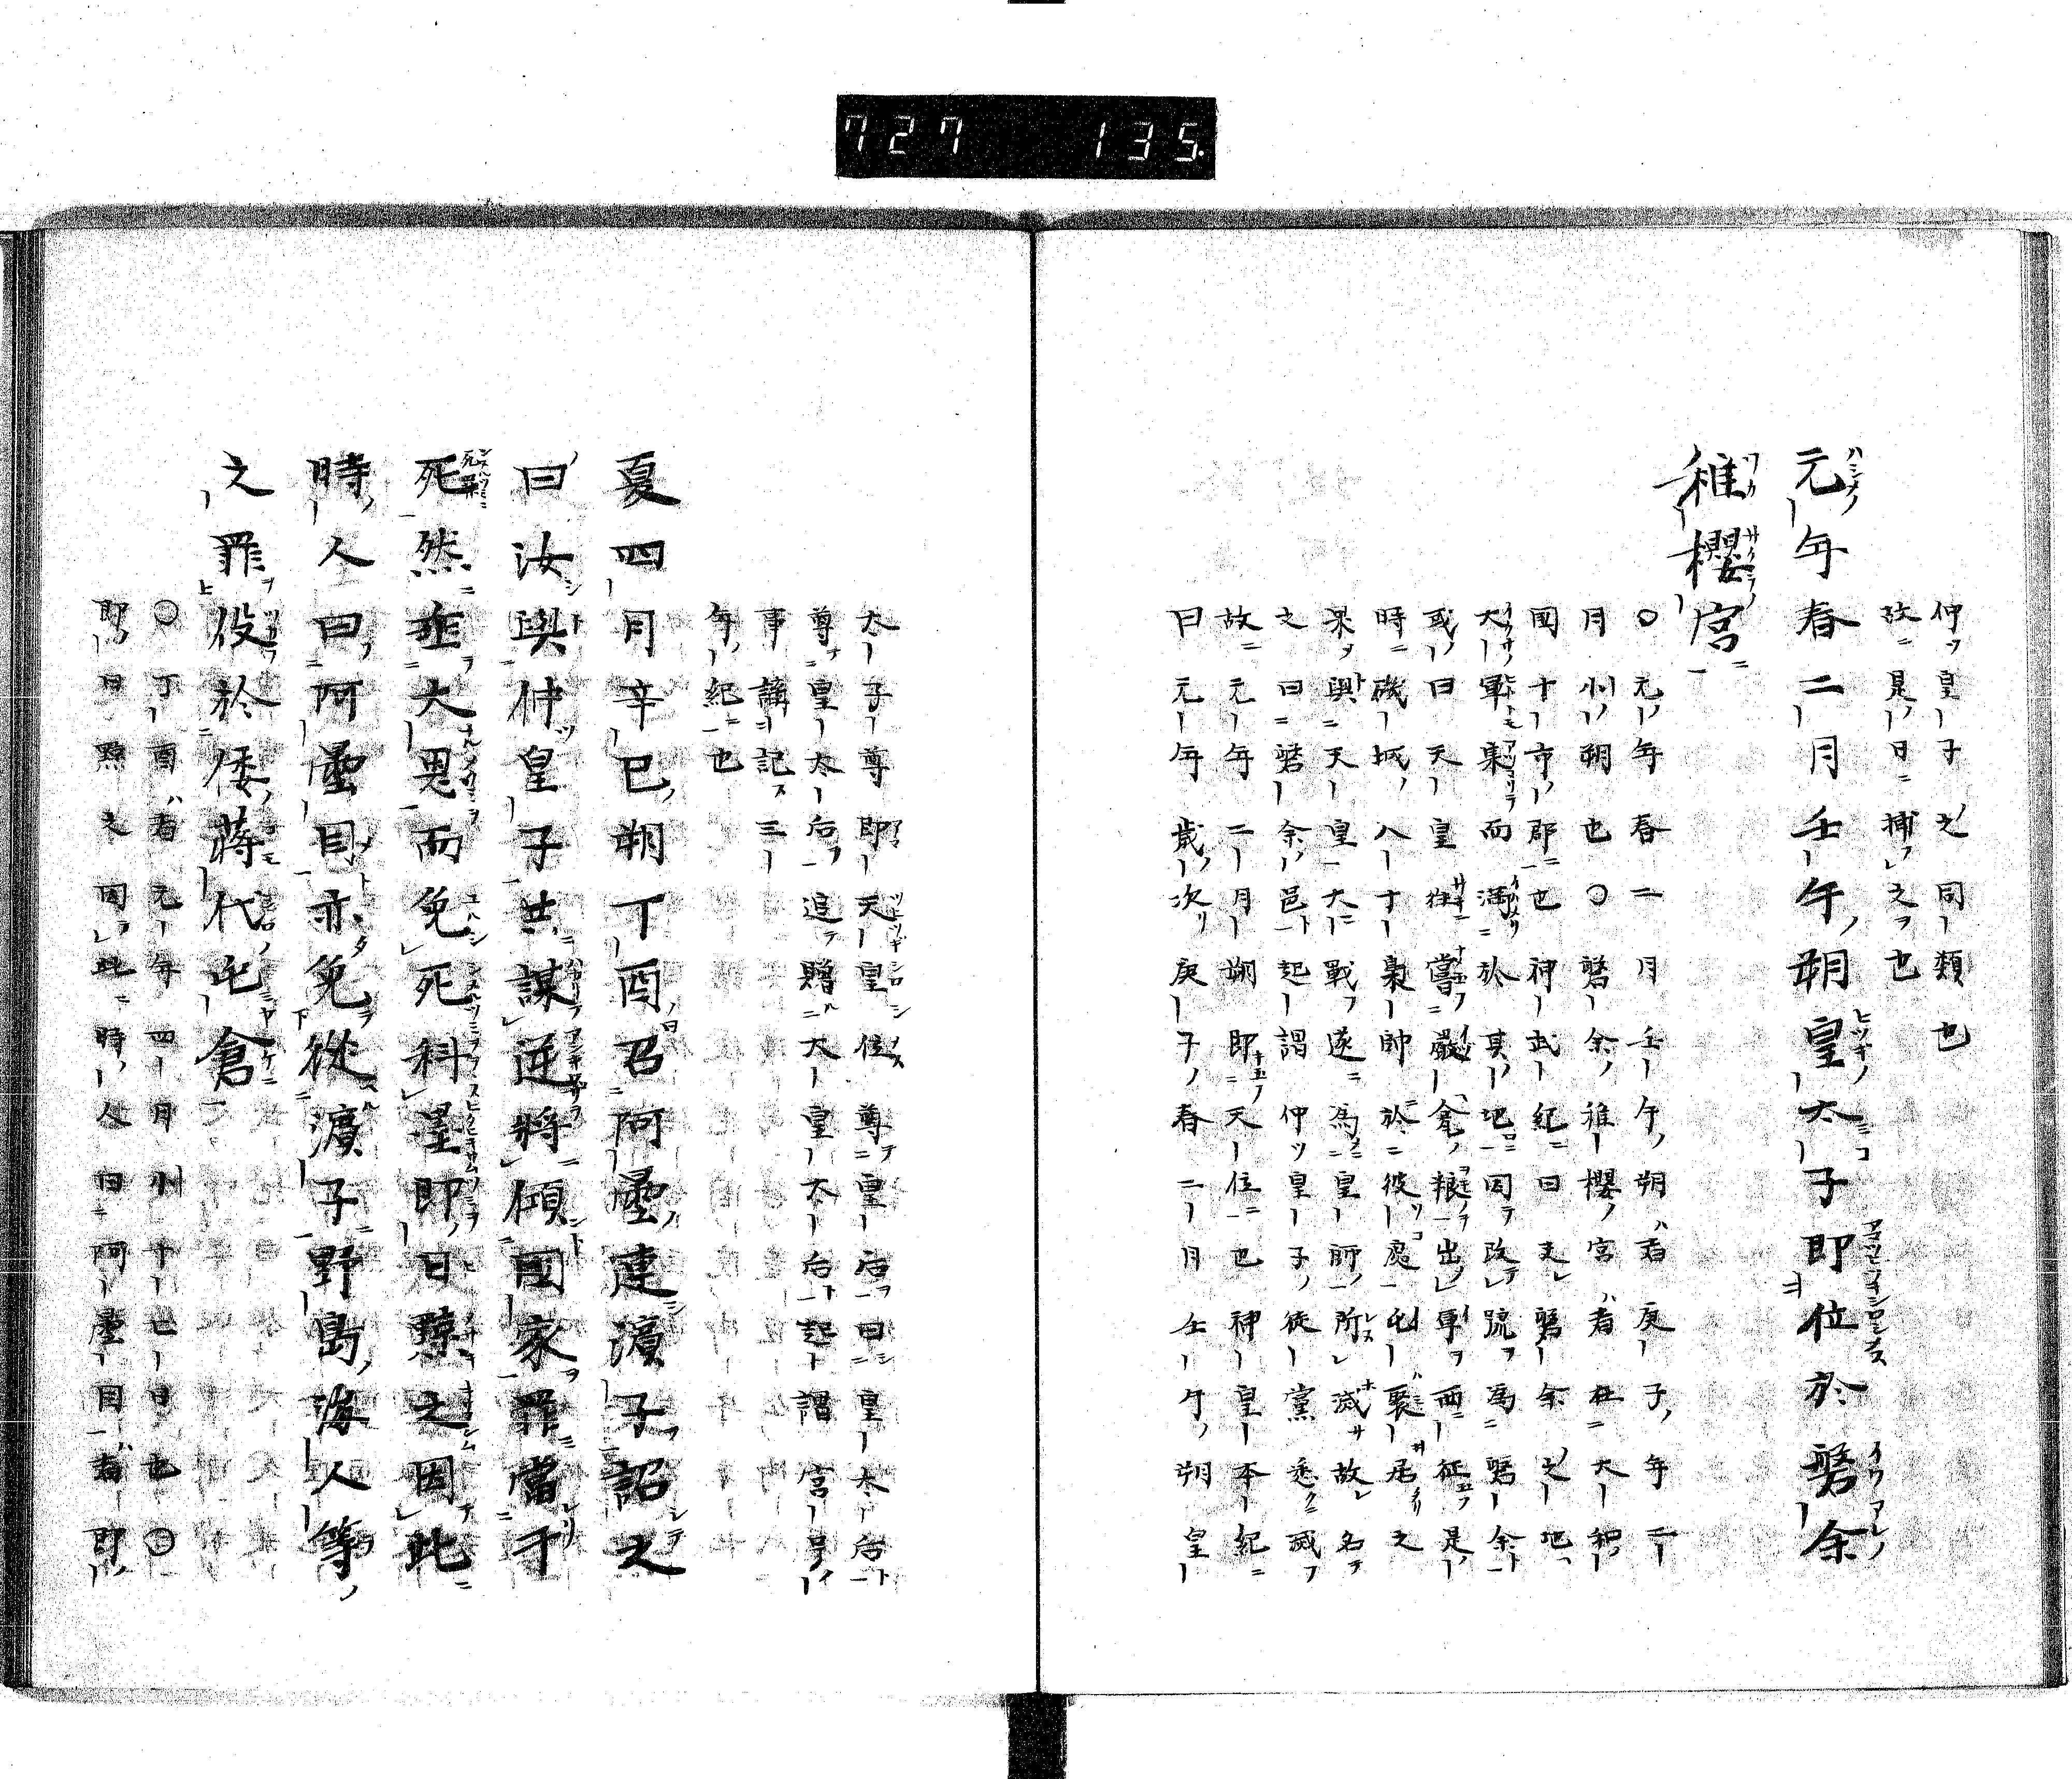 727 135
仲皇子之同類也
故是日捕之也
元年春二月壬午朔皇太子即位於磐余
稚櫻宮
○元年春二月壬午朔者庚子年二
月小朔也○磐余稚櫻宮者在大和
國十市郡也神武紀曰夫磐余之地
大軍集而滿於其地因改號為磐余
或曰天皇往嘗嚴瓮粮出軍西征是
時磯城八十梟帥於彼處屯聚居之
果與天皇大戰遂為皇師所滅故名
之曰磐余邑起謂仲皇子徒黨悉滅
故元年二月朔即天位也神皇本紀
曰元年歲次庚子春二月壬午朔皇
太子尊即天皇位尊皇后曰皇太后
尊皇太后追贈大皇太后起謂宮号
事講記三
年紀也
夏四月辛巳朔丁酉召阿曇連濱子詔之
曰汝與仲皇子共謀逆將傾國家罪當于
死然垂大恩而免死科墨即日黥之因此
時人曰阿曇目亦免從濱子野島海人等
之罪役於倭蔣代屯倉
○丁酉者元年四月小十七日也○
即日黥之因此時人曰阿曇目者即